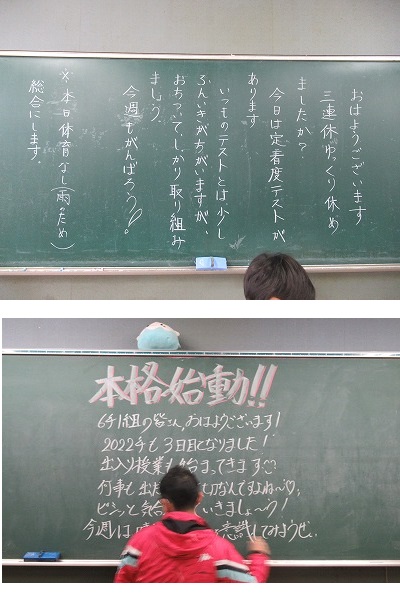 おはようございます
三連休ゆっくり休め
ましたか？
今日は定着度テストが
あります
いつものテストとは少し
ふんいきがちがいますが、
おちついてしっかり取り組み
ましょう。
今週もがんばろう!!
※本日体育なし(雨ため)
総合にします。
本格始動!!
6年1組の皆さん、おはようございます!
2022年も3日目となりました!
出入り授業も始まってきます
何事も出だ 切なんですよね〜♡、
ピシッと気合 いきましょ〜う!
今週は 意識してみようぜ。